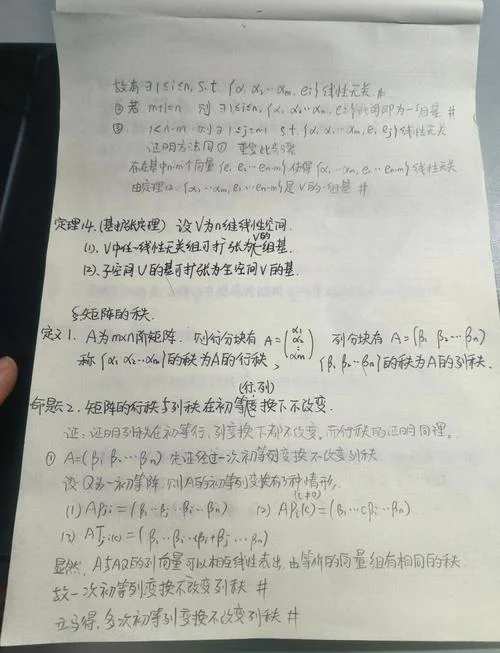 故有 ∃1≤i≤n, s.t. {α₁ α₂ ⋯ αm, ei} 线性无关 #
② 若 m+1=n 则 ∃1≤i≤n, {α₁ α₂ ⋯ αm, ei} 此时即为一组基 #
1<n-m 则 ∃1≤j≤n-1 s.t. {α₁ α₂ ⋯ αm, ei, ej} 线性无关
证明方法同① 重复此步骤
存在基中n-m个向量 {e₁ e₂ ⋯ en-m} 使得 {α₁ ⋯ αm, e₁ ⋯ en-m} 线性无关
由定理12. {α₁ ⋯ αm, e₁ ⋯ en-m} 是V的一组基 #
定理14. (基扩张定理) 设V为n维线性空间.
(1). V中任一线性无关组可扩张为V的一组基.
(2). 子空间U的基可扩张为全空间V的基.
§ 矩阵的秩.
定义1. A为m×n阶矩阵. 则行分块有 A=(α₁ α₂ ⋮ αm) 列分块有 A=(β₁ β₂ ⋯ βn)
称 {α₁ α₂ ⋯ αm} 的秩为A的行秩, {β₁ β₂ ⋯ βn} 的秩为A的列秩.
命题2. 矩阵的行秩与列秩在初等(行.列)变换下不改变.
证: 证明列秩在初等行、列变换下都不改变, 而行秩的证明同理.
① A=(β₁ β₂ ⋯ βn) 先证经过一次初等列变换不改变列秩
设Q为一初等阵, 则A的初等列变换有3种情形.
(1) APji = (β₁ ⋯ βj ⋯ βi ⋯ βn) (2) APi(c) = (β₁ ⋯ cβi ⋯ βn) (c≠0)
(3) ATji(c) = (β₁ ⋯ βi ⋯ cβi+βj ⋯ βn)
显然, A与AQ的列向量可以相互线性表出, 由等价的向量组有相同的秩
故一次初等列变换不改变列秩 #
立马得, 多次初等列变换不改变列秩 #